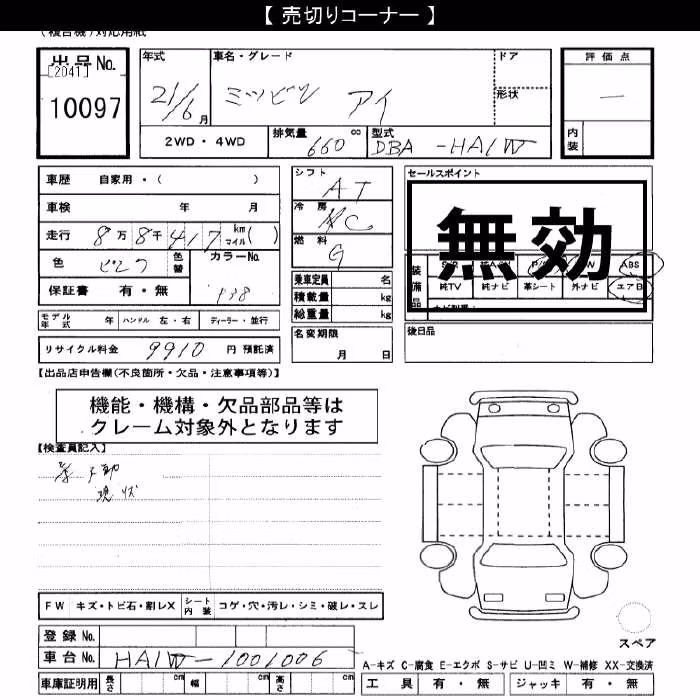 【 売切りコーナー 】
(複合機)対応用紙
出品No.
[2041]
10097
年式
21/6月
車名・グレード
ミツビシ アイ
ドア
形状
評価点
—
内装
2WD・4WD
排気量
660 cc
型式
DBA-HA1W
車歴 自家用・( )
車検 年 月
走行 8万8千417 kmマイル( )
色 ピンク
色替
カラーNo.
P38
保証書 有・無
モデル年式 年 ハンドル 左・右 ディーラー・並行
リサイクル料金 9910 円 預託済
シフト
AT
冷房
AC
燃料
G
乗車定員 名
積載量 kg
総重量 kg
名変期限
月 日
セールスポイント
無効
装備品
ABS
純TV 純ナビ 革シート 外ナビ エアB
後日品
【出品店申告欄(不良箇所・欠品・注意事項等)】
機能・機構・欠品部品等は
クレーム対象外となります
【検査員記入】
不動
現状
FW キズ・トビ石・割レX シート内装 コゲ・穴・汚レ・シミ・破レ・スレ
登録 No.
車台 No. HA1W-1001006
車庫証明用 長さ cm 幅 cm 高さ cm
スペア
A-キズ C-腐食 E-エクボ S-サビ U-凹ミ W-補修 XX-交換済
工具 有・無 ジャッキ 有・無